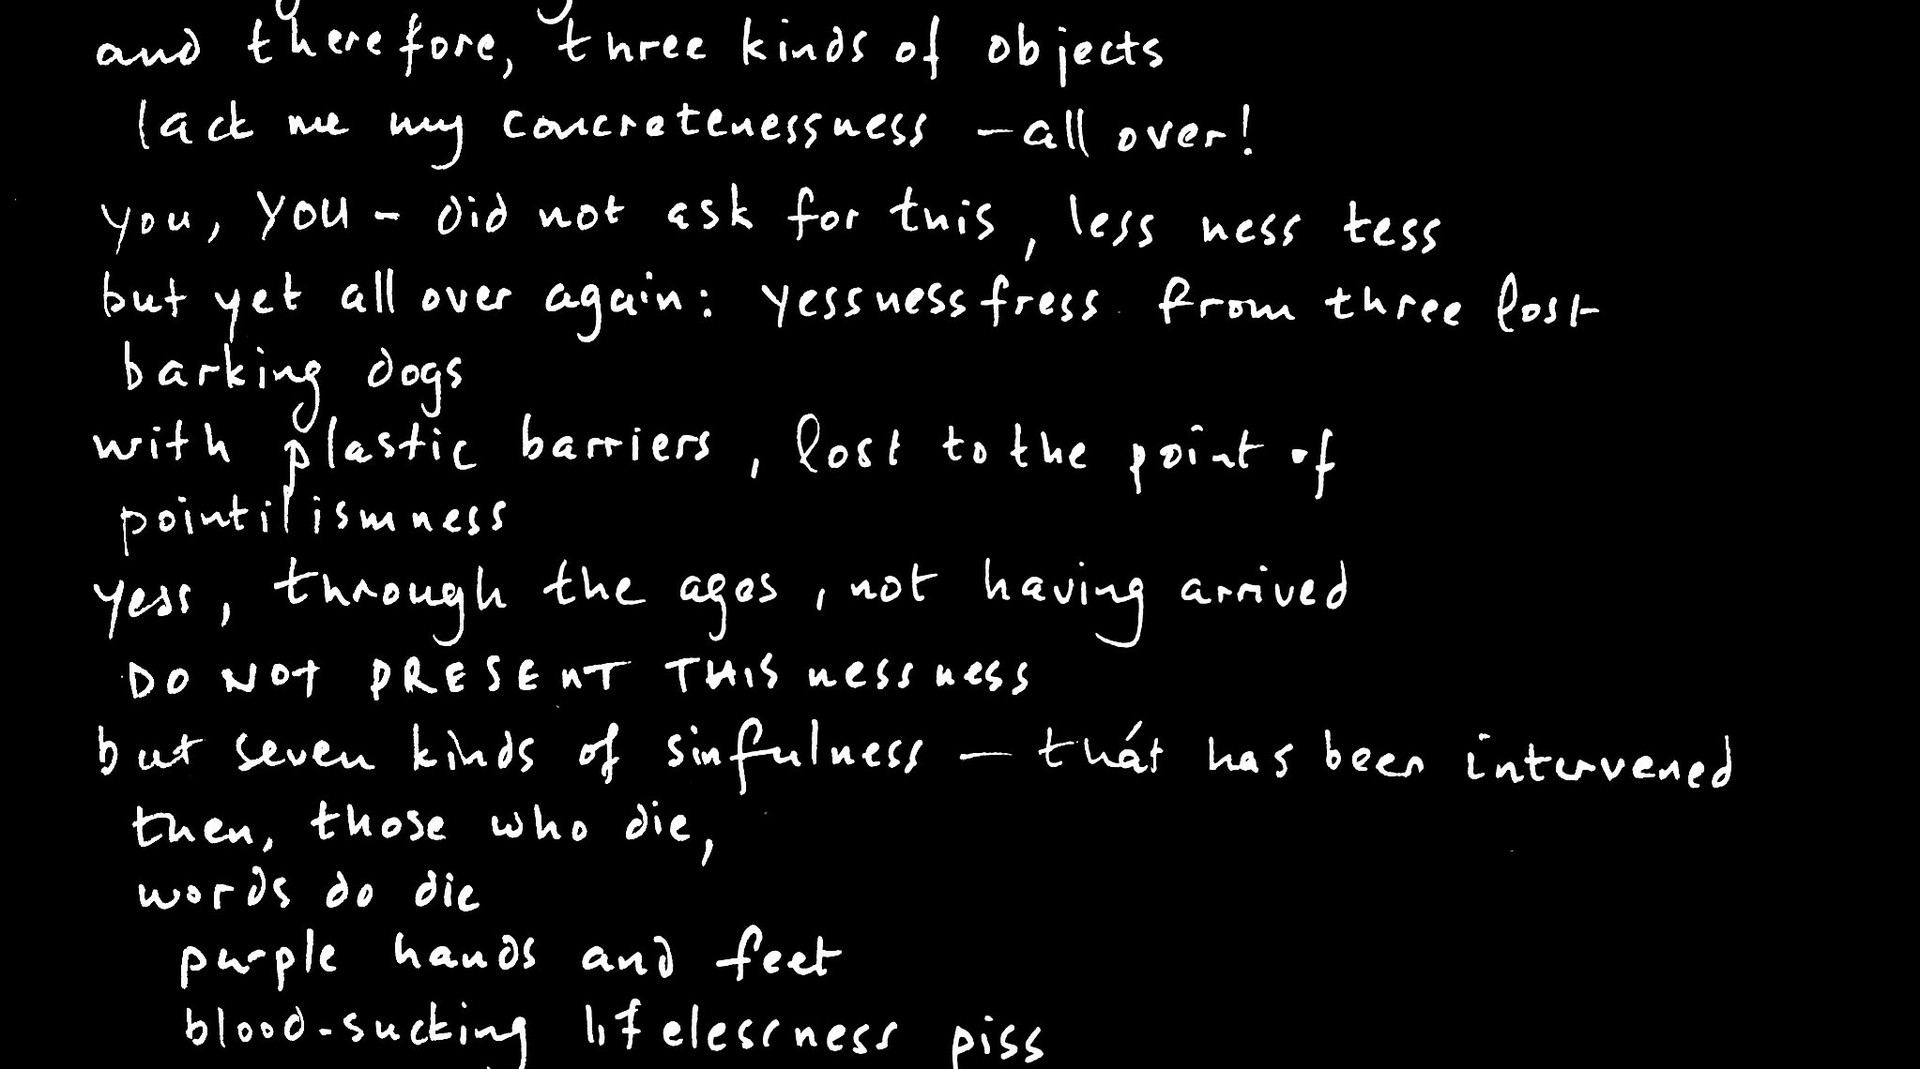 and therefore, three kinds of objects
lack me my concretenessness – all over!
you, YOU – did not ask for this, less ness tess
but yet all over again: yessnessfress from three lost
barking dogs
with plastic barriers, lost to the point of
pointilismness
yess, through the ages, not having arrived
DO NOT PRESENT THIS nessness
but seven kinds of sinfulness – thát has been intervened
then, those who die,
words do die
purple hands and feet
blood-sucking lifelessness piss